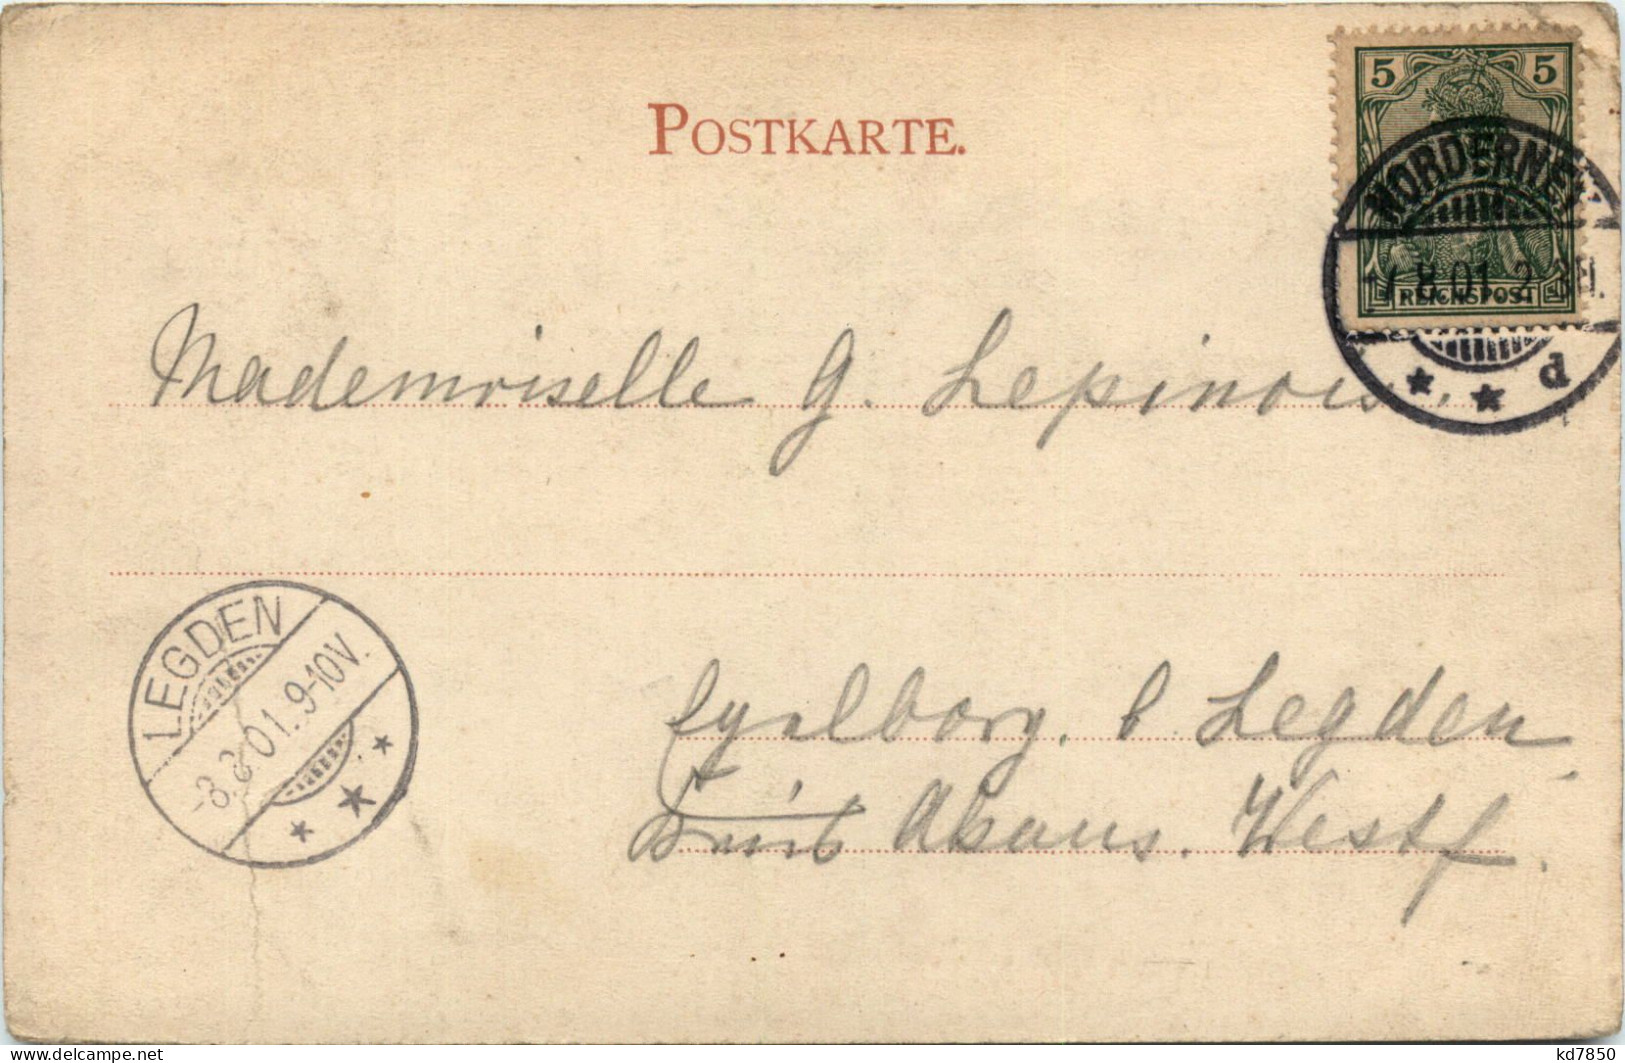 POSTKARTE.
5 5
NORDERNEY
7.8.01. 2-3N.
REICHSPOST
d
Mademoiselle G. Lepinois.
LEGDEN
-8.8.01. 9-10V.
b. Legden
Kreis Ahaus. Westf.
www.delcampe.net
kd7850